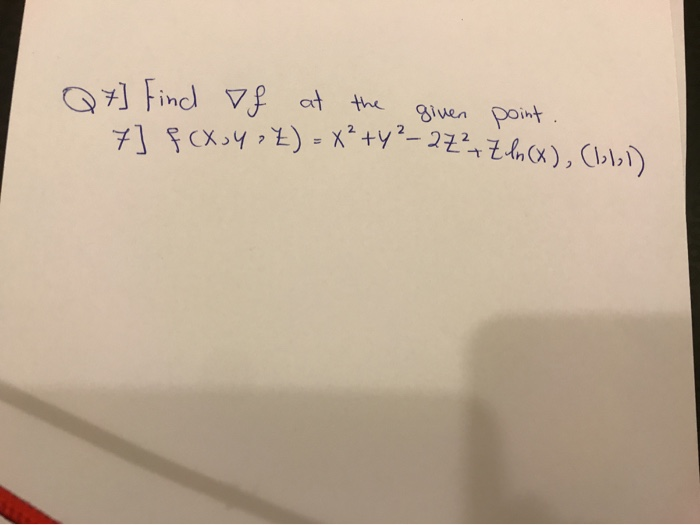 Q7] Find ∇f at the given point.
7] f(x,y,z) = x²+y²-2z²+zln(x), (1,1,1)